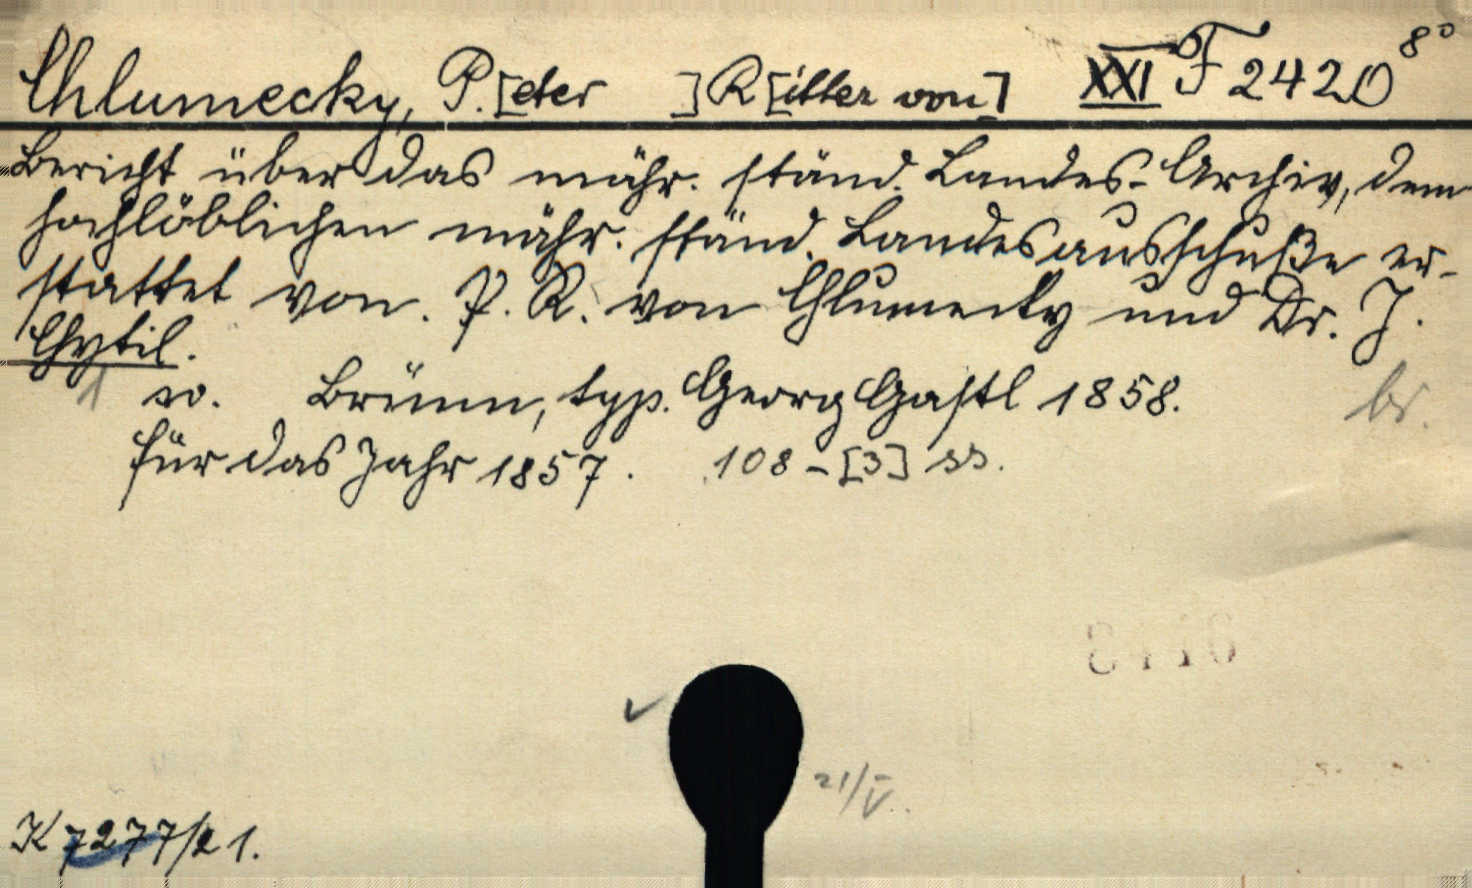 Chlumecky, P.[eter ] R[itter von] XXI F 2420 8°
Bericht über das mähr. ständ. Landes-Archiv, dem
hochlöblichen mähr. ständ. Landesausschuße er-
stattet von P. R. von Chlumecky und Dr. J.
Chytil.
1 vo. Brünn, typ. Georg Gastl 1858. br.
für das Jahr 1857. 108-[3] ss.
21/V.
K 7277/21.